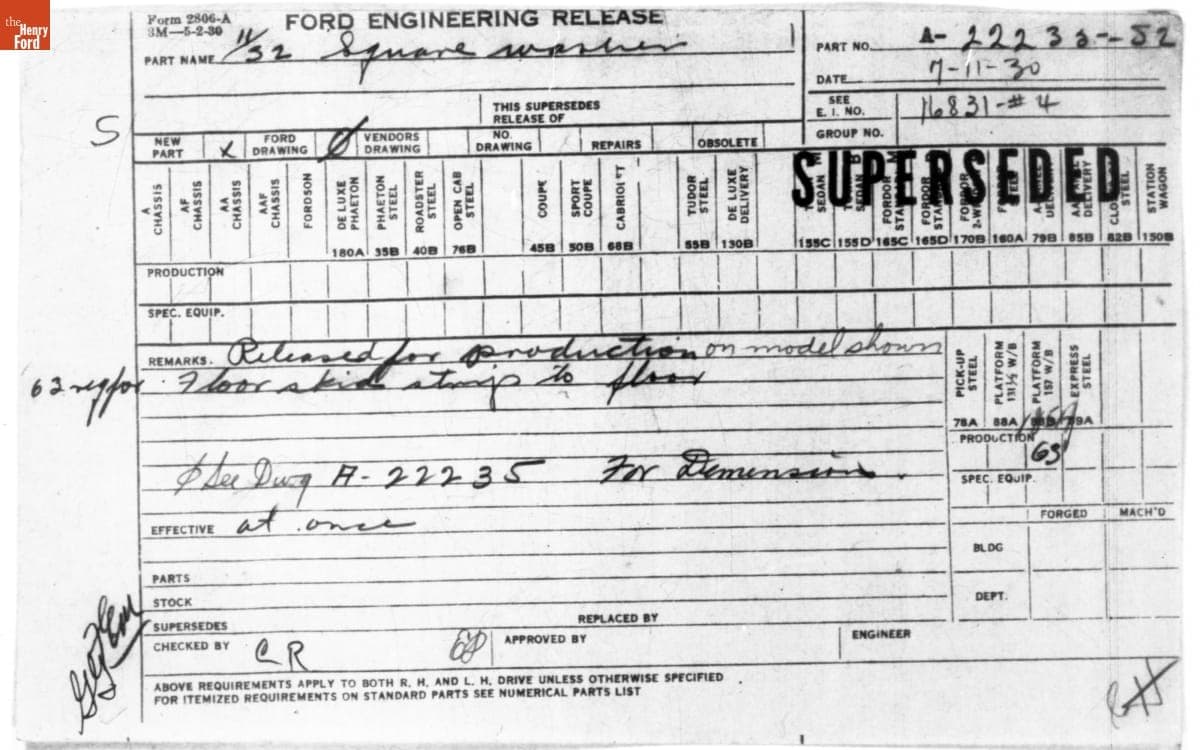 the Henry Ford
Form 2806-A
3M—5-2-30
FORD ENGINEERING RELEASE
PART NAME 11/32 Square washer
PART NO. A-22233-S2
DATE 7-11-30
SEE E. I. NO. 16831-#4
GROUP NO.
THIS SUPERSEDES
RELEASE OF
S
NEW PART X
FORD DRAWING
VENDORS DRAWING
NO. DRAWING
REPAIRS
OBSOLETE
SUPERSEDED
A CHASSIS
AF CHASSIS
AA CHASSIS
AAF CHASSIS
FORDSON
DE LUXE PHAETON 180A
PHAETON STEEL 35B
ROADSTER STEEL 40B
OPEN CAB STEEL 76B
COUPE 45B
SPORT COUPE 50B
CABRIOLET 68B
TUDOR STEEL 55B
DE LUXE DELIVERY 130B
SEDAN 155C
SEDAN 155D
FORDOR 165C
FORDOR 165D
FORDOR 170B
160A
79B
DELIVERY 85B
STEEL 82B
STATION WAGON 150B
PRODUCTION
SPEC. EQUIP.
REMARKS. Released for production on model shown
62 req for Floor skid strip to floor
PICK-UP STEEL 78A
PLATFORM 131½ W/B 88A
PLATFORM 157 W/B
EXPRESS STEEL
PRODUCTION
SPEC. EQUIP.
See Dwg A-22235 For Demension.
EFFECTIVE at once
FORGED
MACH'D
BLDG
DEPT.
PARTS
STOCK
SUPERSEDES
REPLACED BY
CHECKED BY CR
APPROVED BY
ENGINEER
ABOVE REQUIREMENTS APPLY TO BOTH R. H. AND L. H. DRIVE UNLESS OTHERWISE SPECIFIED
FOR ITEMIZED REQUIREMENTS ON STANDARD PARTS SEE NUMERICAL PARTS LIST